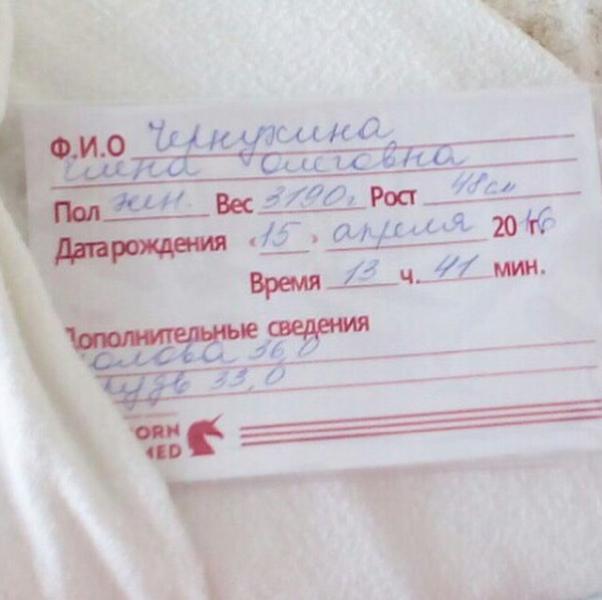 Ф.И.О Чернухина
Елена Олеговна
Пол жен. Вес 3190г Рост 48см
Дата рождения «15» апреля 2016 г.
Время 13 ч. 41 мин.
Дополнительные сведения
олова 36,0
рудь 33,0
ORN
MED